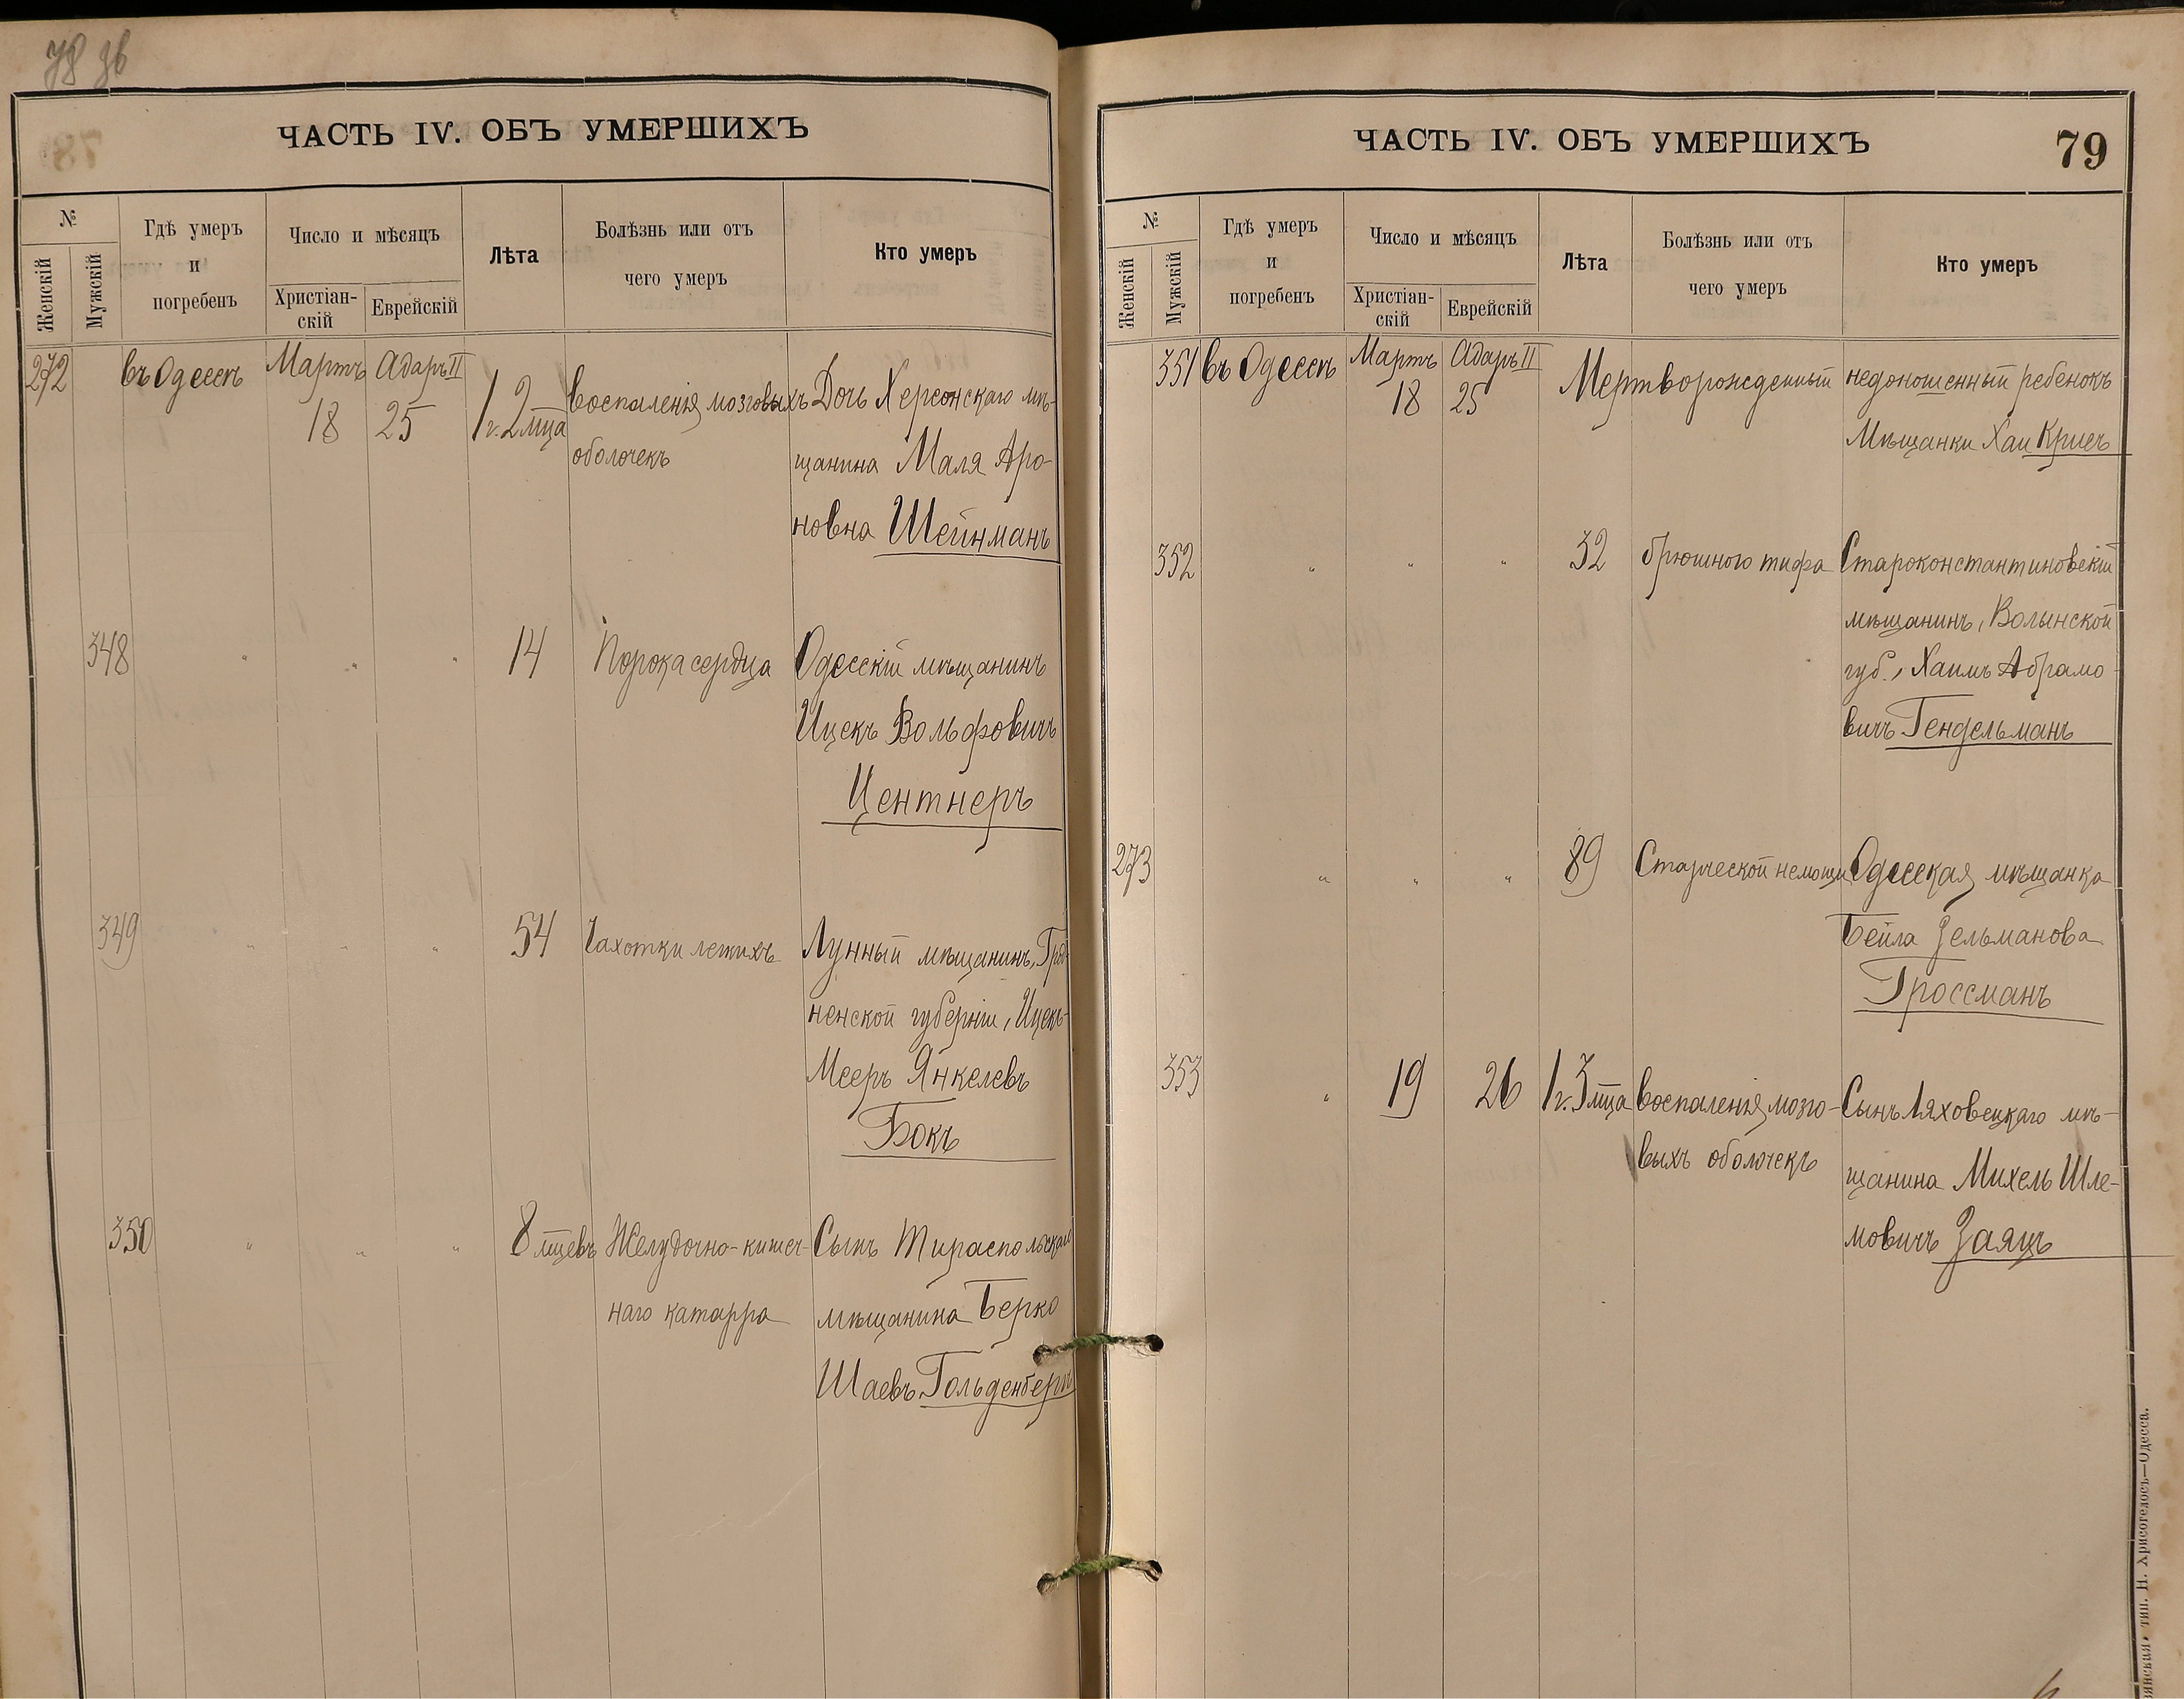 78 зв
ЧАСТЬ IV. ОБЪ УМЕРШИХЪ
№
Женскій
Мужскій
Гдѣ умеръ
и
погребенъ
Число и мѣсяцъ
Христіан-
скій
Еврейскій
Лѣта
Болѣзнь или отъ
чего умеръ
Кто умеръ
272 въ Одессѣ Мартъ 18 Адаръ II 25 1 г. 2 мца воспаленія мозговыхъ Дочь Херсонскаго мѣ-
оболочекъ щанина Маля Аро-
новна Шейнманъ
348 " " " 14 Порока сердца Одесскій мѣщанинъ
Ицекъ Вольфовичъ
Центнеръ
349 " " " 54 Чахотки легкихъ Лунный мѣщанинъ, Грод-
ненской губерніи, Ицекъ-
Мееръ Янкелевъ
Бокъ
350 " " " 8 мцевъ Желудочно-кишеч- Сынъ Тираспольскаго
наго катарра мѣщанина Берко
Шаевъ Гольденбергъ
ЧАСТЬ IV. ОБЪ УМЕРШИХЪ
79
№
Женскій
Мужскій
Гдѣ умеръ
и
погребенъ
Число и мѣсяцъ
Христіан-
скій
Еврейскій
Лѣта
Болѣзнь или отъ
чего умеръ
Кто умеръ
351 въ Одессѣ Мартъ 18 Адаръ II 25 Мертворожденный недоношенный ребенокъ
Мѣщанки Хаи Крисъ
352 " " " 32 брюшного тифа Староконстантиновскій
мѣщанинъ, Волынской
губ., Хаимъ Абрамо-
вичъ Гендельманъ
273 " " " 89 Старческой немощи Одесская мѣщанка
Бейла Зельманова
Гроссманъ
353 " 19 26 1 г. 3 мца воспаленія мозго- Сынъ Ляховецкаго мѣ-
выхъ оболочекъ щанина Михель Шле-
мовичъ Заяцъ
тип. Н. Хрисогелосъ—Одесса.